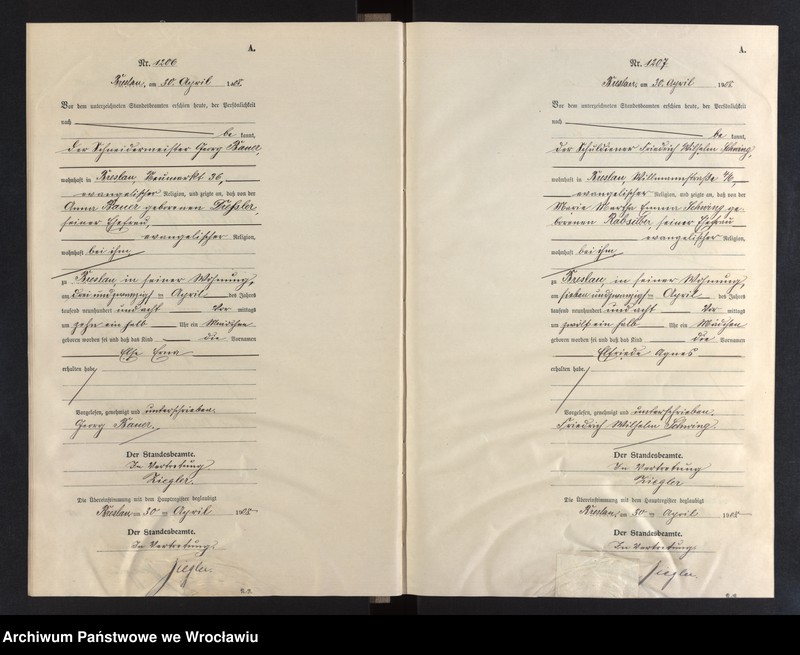 A.
Nr. 1206
Breslau, am 30. April 1908.
Vor dem unterzeichneten Standesbeamten erschien heute, der Persönlichkeit
nach
be kannt,
der Schneidermeister Georg Bauer,
wohnhaft in Breslau Neumarkt 36,
evangelischer Religion, und zeigte an, daß von der
Anna Bauer geborenen
seiner Ehefrau,
evangelischer Religion,
wohnhaft bei ihm
zu Breslau in seiner Wohnung,
am dreiundzwanzigsten April des Jahres
tausend neunhundert und acht Vor mittags
um zehn ein halb Uhr ein Mädchen
geboren worden sei und daß das Kind die Vornamen
Else Erna
erhalten habe.
Vorgelesen, genehmigt und unterschrieben.
Georg Bauer.
Der Standesbeamte.
In Vertretung
Ziegler.
Die Übereinstimmung mit dem Hauptregister beglaubigt
Breslau, am 30ten April 1908
Der Standesbeamte.
In Vertretung.
Ziegler
A.
Nr. 1207
Breslau, am 30. April 1908.
Vor dem unterzeichneten Standesbeamten erschien heute, der Persönlichkeit
nach
be kannt,
der Schuldiener Friedrich Wilhelm Schwing,
wohnhaft in Breslau, Willmannstraße
evangelischer Religion, und zeigte an, daß von der
Marie Martha Emma Schwing ge-
borenen Rabsilber, seiner Ehefrau
evangelischer Religion,
wohnhaft bei ihm
zu Breslau in seiner Wohnung,
am siebenundzwanzigsten April des Jahres
tausend neunhundert und acht Vor mittags
um zwölf ein halb Uhr ein Mädchen
geboren worden sei und daß das Kind die Vornamen
Elfriede Agnes
erhalten habe.
Vorgelesen, genehmigt und unterschrieben.
Friedrich Wilhelm Schwing.
Der Standesbeamte.
In Vertretung
Ziegler
Die Übereinstimmung mit dem Hauptregister beglaubigt
Breslau, am 30ten April 1908
Der Standesbeamte.
In Vertretung.
Ziegler
Archiwum Państwowe we Wrocławiu